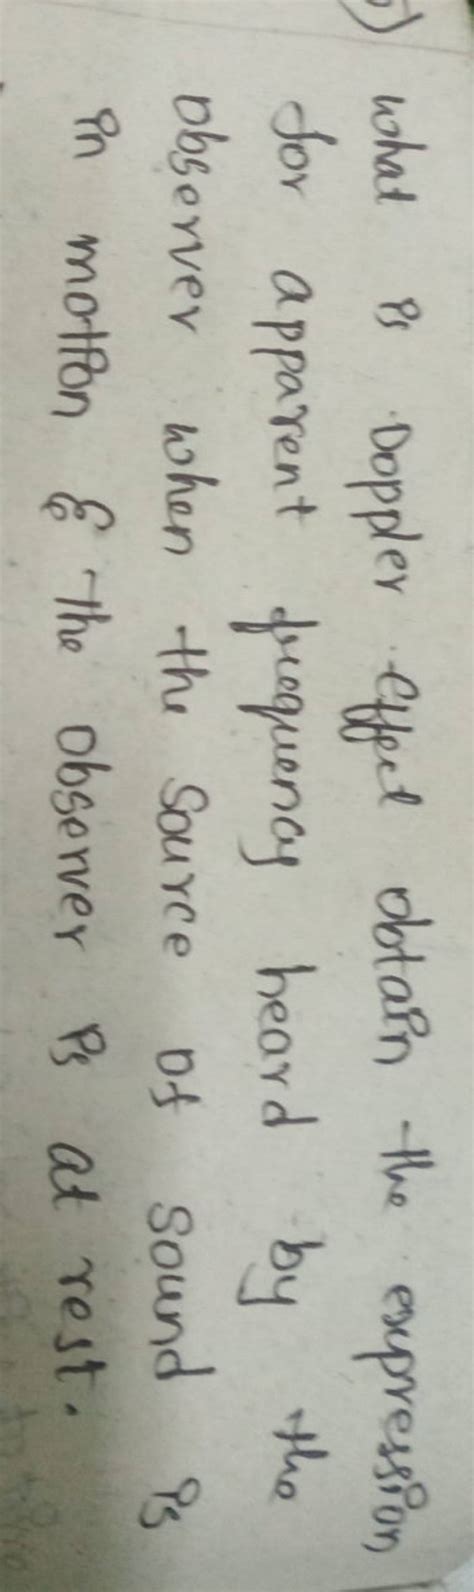 what is Doppler Effect obtain the expression
for apparent frequency heard by the
observer when the source of sound is
in motion & the observer is at rest.